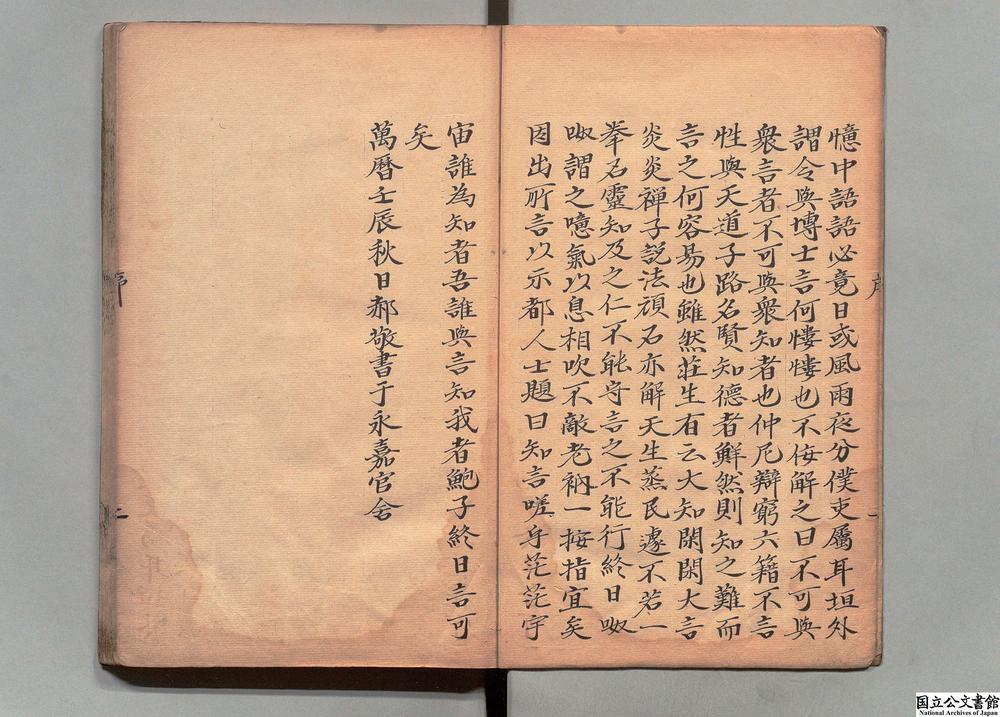 憶中語語必竟日或風雨夜分僕吏屬耳垣外
謂令與博士言何慺慺也不佞解之曰不可與
衆言者不可與衆知者也仲尼辯窮六籍不言
性與天道子路名賢知德者鮮然則知之難而
言之何容易也雖然莊生有云大知閑閑大言
炎炎禪子說法頑石亦解天生蒸民遽不若一
拳石靈知及之仁不能守言之不能行終日呶
呶謂之噫氣以息相吹不敵老衲一按指宜矣
因出所言以示都人士題曰知言嗟乎茫茫宇
宙誰為知者吾誰與言知我者鮑子終日言可
矣
萬曆壬辰秋日郝敬書于永嘉官舍
序
一
二
国立公文書館
National Archives of Japan